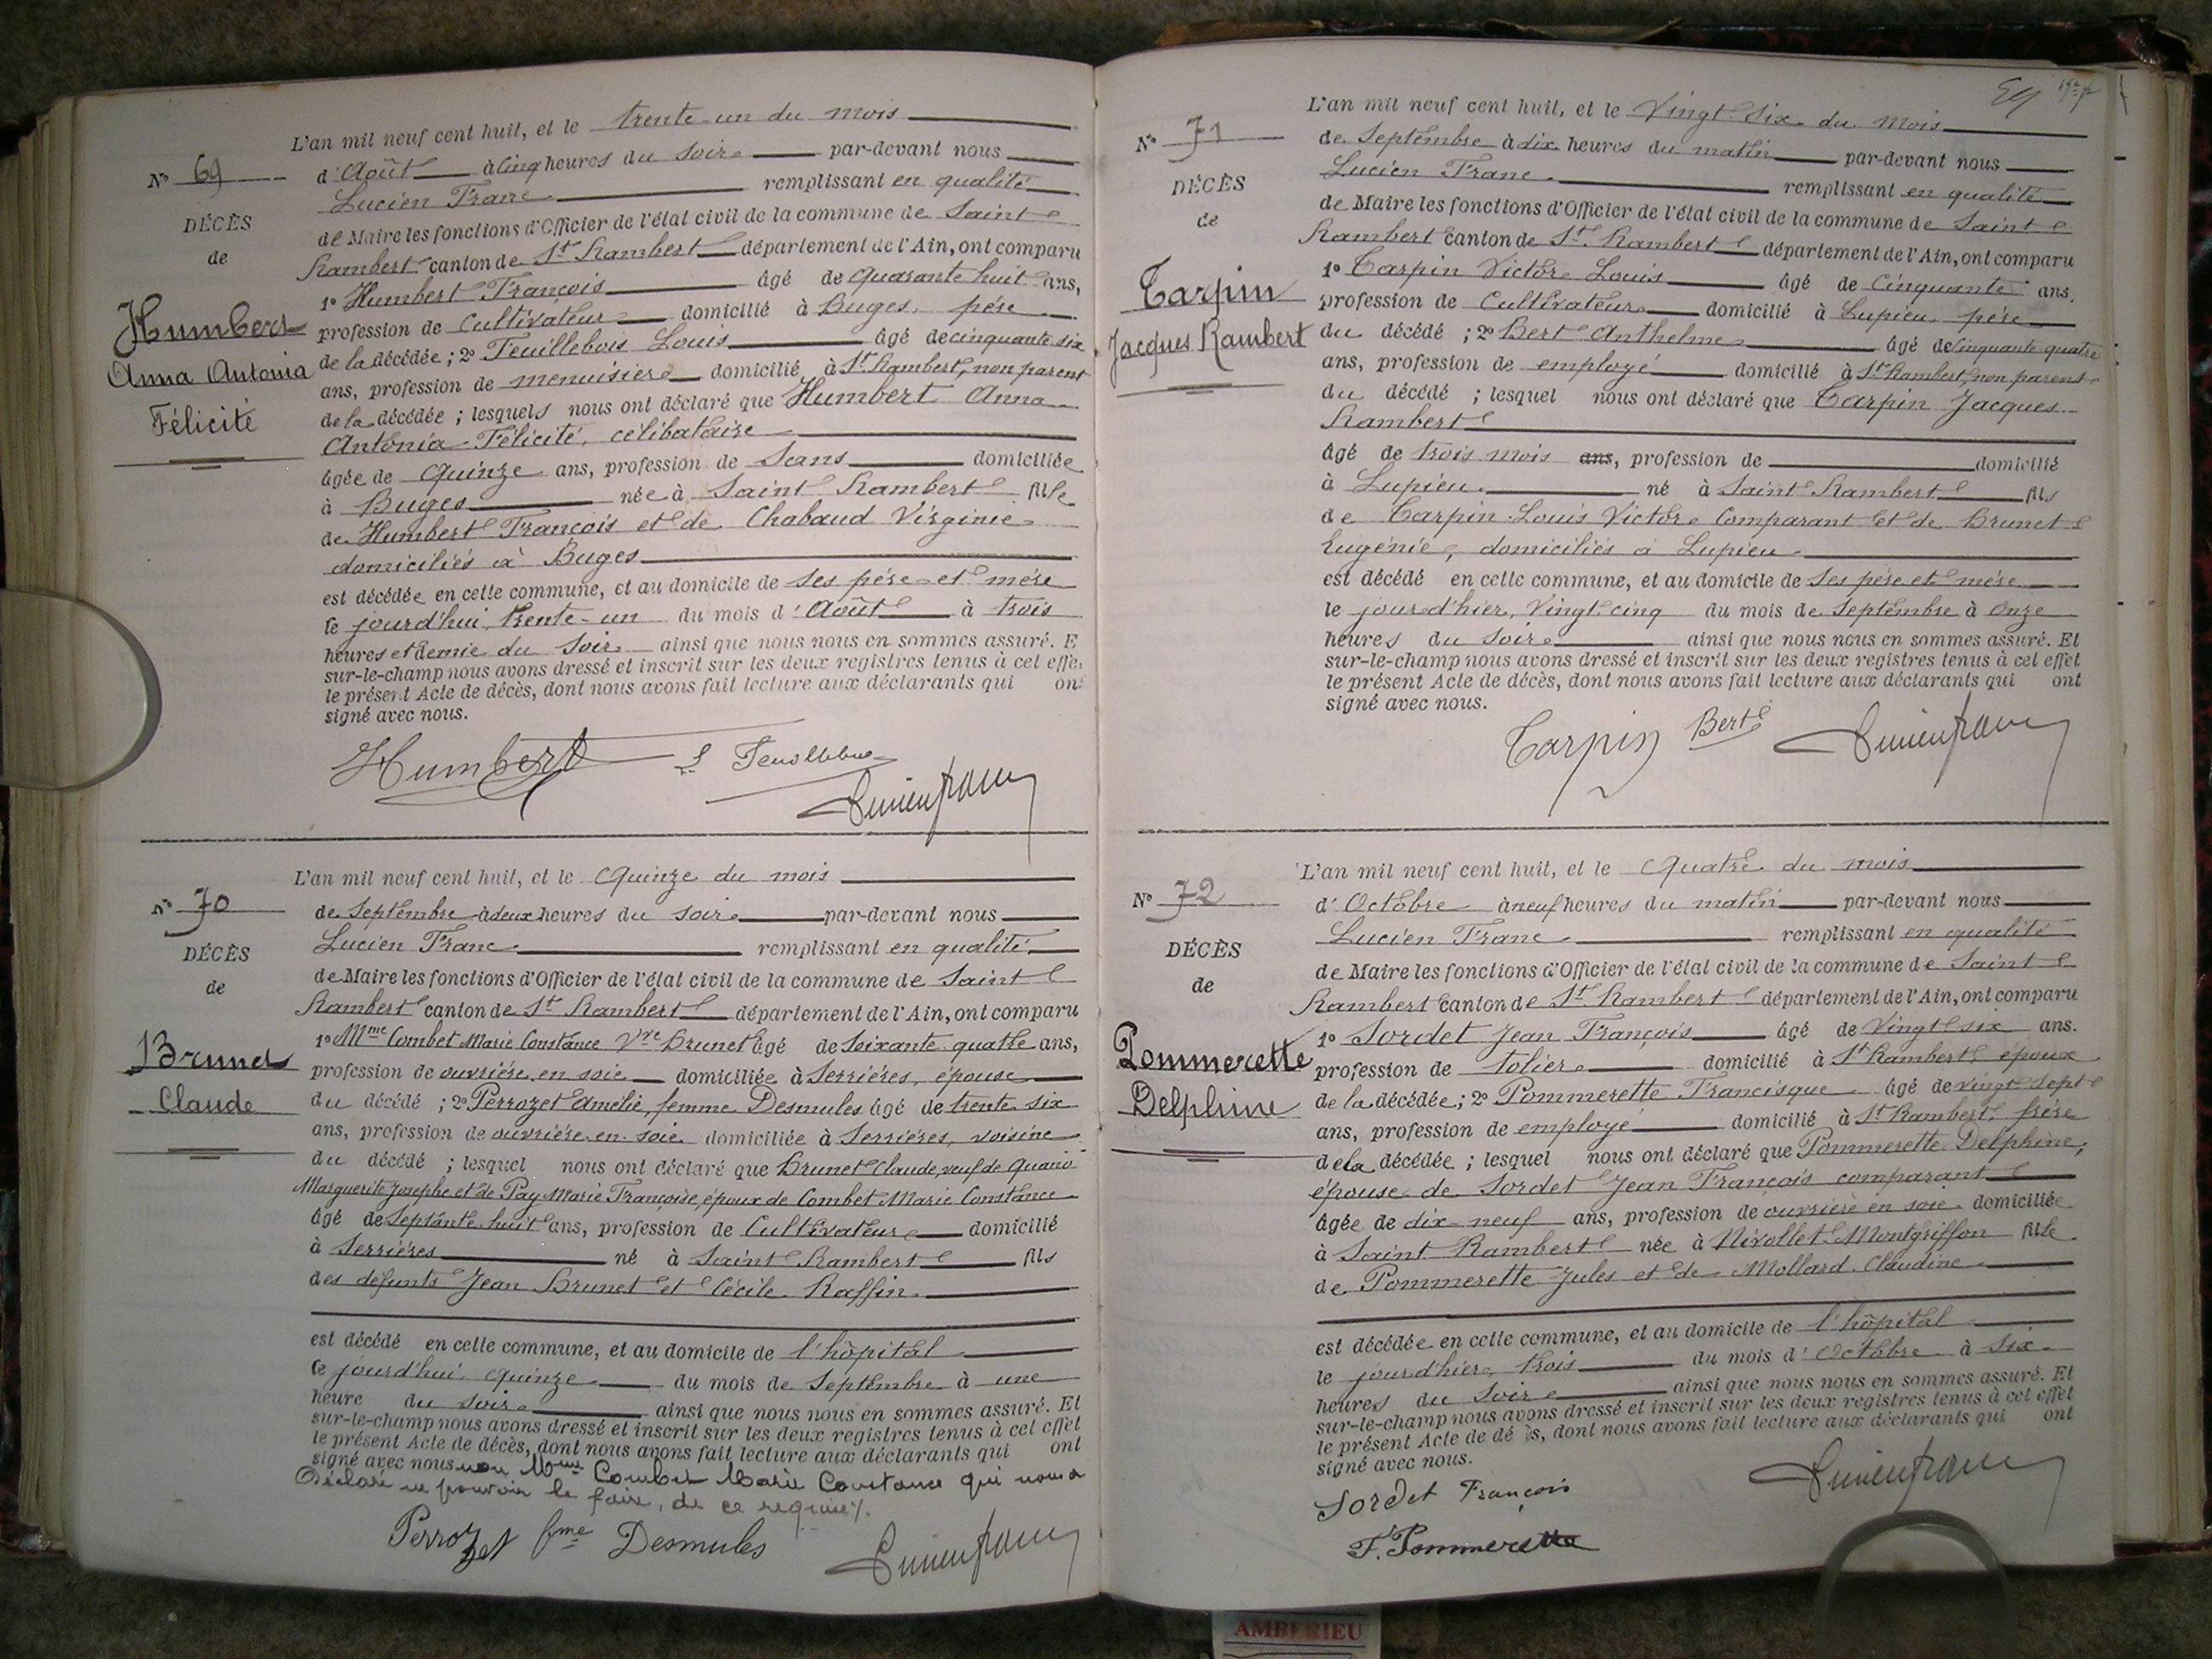 L'an mil neuf cent huit, et le trente-un du mois
Nº 69
d'Août à cinq heures du soir par-devant nous
DÉCÈS
Lucien Franc remplissant en qualité
de
de Maire les fonctions d'Officier de l'état civil de la commune de Saint
Rambert canton de St Rambert département de l'Ain, ont comparu
Humbert
Anna Antonia
Félicité
1º Humbert François âgé de quarante huit ans,
profession de Cultivateur domicilié à Buges, père
de la décédée ; 2º Feuillebois Louis âgé de cinquante six
ans, profession de menuisier domicilié à St Rambert, non parent
de la décédée ; lesquels nous ont déclaré que Humbert Anna
Antonia Félicité, célibataire
âgée de quinze ans, profession de Sans domiciliée
à Buges née à Saint Rambert fille
de Humbert François et de Chabaud Virginie
domiciliés à Buges
est décédée en cette commune, et au domicile de ses père et mère
le jourd'hui trente-un du mois d'Août à trois
heures et demie du soir ainsi que nous nous en sommes assuré. E
sur-le-champ nous avons dressé et inscrit sur les deux registres tenus à cet effe
le présent Acte de décès, dont nous avons fait lecture aux déclarants qui on
signé avec nous.
Humbert L Feuillebois
Lucien franc
L'an mil neuf cent huit, et le quinze du mois
Nº 70
de Septembre à deux heures du soir par-devant nous
DÉCÈS
Lucien Franc remplissant en qualité
de
de Maire les fonctions d'Officier de l'état civil de la commune de Saint
Rambert canton de St Rambert département de l'Ain, ont comparu
Brunet
Claude
1º Mme Combet Marie Constance Vve Brunet âgé de Soixante quatre ans,
profession de ouvrière en soie domiciliée à Serrières, épouse
du décédé ; 2º Perrozet Amélie, femme Desmules âgé de trente six
ans, profession de ouvrière en soie domiciliée à Serrières, voisine
du décédé ; lesquel nous ont déclaré que Brunet Claude, veuf de
Marguerite Josephe et de Pay Marie Françoise, époux de Combet Marie Constance
âgé de Septante huit ans, profession de Cultivateur domicilié
à Serrières né à Saint Rambert fils
des défunts Jean Brunet et Cécile Raffin
est décédé en cette commune, et au domicile de l'hôpital
le jourd'hui quinze du mois de Septembre à une
heure du soir ainsi que nous nous en sommes assuré. Et
sur-le-champ nous avons dressé et inscrit sur les deux registres tenus à cet effet
le présent Acte de décès, dont nous avons fait lecture aux déclarants qui ont
signé avec nous non Mme Combet Marie Constance qui nous a
Déclaré ne pouvoir le faire, de ce requise
Perrozet fme Desmules Lucien franc
L'an mil neuf cent huit, et le Vingt six du mois
Nº 71
de Septembre à dix heures du matin par-devant nous
DÉCÈS
Lucien Franc remplissant en qualité
de
de Maire les fonctions d'Officier de l'état civil de la commune de Saint
Rambert canton de St Rambert département de l'Ain, ont comparu
Carpin
Jacques Rambert
1º Carpin Victor Louis âgé de Cinquante ans.
profession de Cultivateur domicilié à Lupieu père
du décédé ; 2º Bert Anthelme âgé de Cinquante quatre
ans, profession de employé domicilié à St Rambert, non parent
du décédé ; lesquel nous ont déclaré que Carpin Jacques
Rambert
âgé de trois mois ans, profession de domicilié
à Lupieu né à Saint Rambert fils
de Carpin Louis Victor Comparant et de Brunet
Eugénie, domiciliés à Lupieu
est décédé en cette commune, et au domicile de ses père et mère
le jourd'hier, Vingt-cinq du mois de Septembre à onze
heures du soir ainsi que nous nous en sommes assuré. Et
sur-le-champ nous avons dressé et inscrit sur les deux registres tenus à cet effet
le présent Acte de décès, dont nous avons fait lecture aux déclarants qui ont
signé avec nous.
Carpin Bert Lucien franc
L'an mil neuf cent huit, et le quatre du mois
Nº 72
d'Octobre à neuf heures du matin par-devant nous
DÉCÈS
Lucien Franc remplissant en qualité
de
de Maire les fonctions d'Officier de l'état civil de la commune de Saint
Rambert canton de St Rambert département de l'Ain, ont comparu
Pommerette
Delphine
1º Sordet Jean François âgé de Vingt six ans.
profession de tôlier domicilié à St Rambert, époux
de la décédée ; 2º Pommerette Francisque âgé de vingt sept
ans, profession de employé domicilié à St Rambert, frère
de la décédée ; lesquel nous ont déclaré que Pommerette Delphine,
épouse de Sordet Jean François comparant
âgée de dix-neuf ans, profession de ouvrière en soie domiciliée
à Saint Rambert née à Nivollet-Montgriffon fille
de Pommerette Jules et de Mollard Claudine
est décédée en cette commune, et au domicile de l'hôpital
le jourd'hier, trois du mois d'Octobre à six
heures du soir ainsi que nous nous en sommes assuré. Et
sur-le-champ nous avons dressé et inscrit sur les deux registres tenus à cet effet
le présent Acte de dé ès, dont nous avons fait lecture aux déclarants qui ont
signé avec nous.
Sordet François Lucien franc
F. Pommerette
AMBERIEU